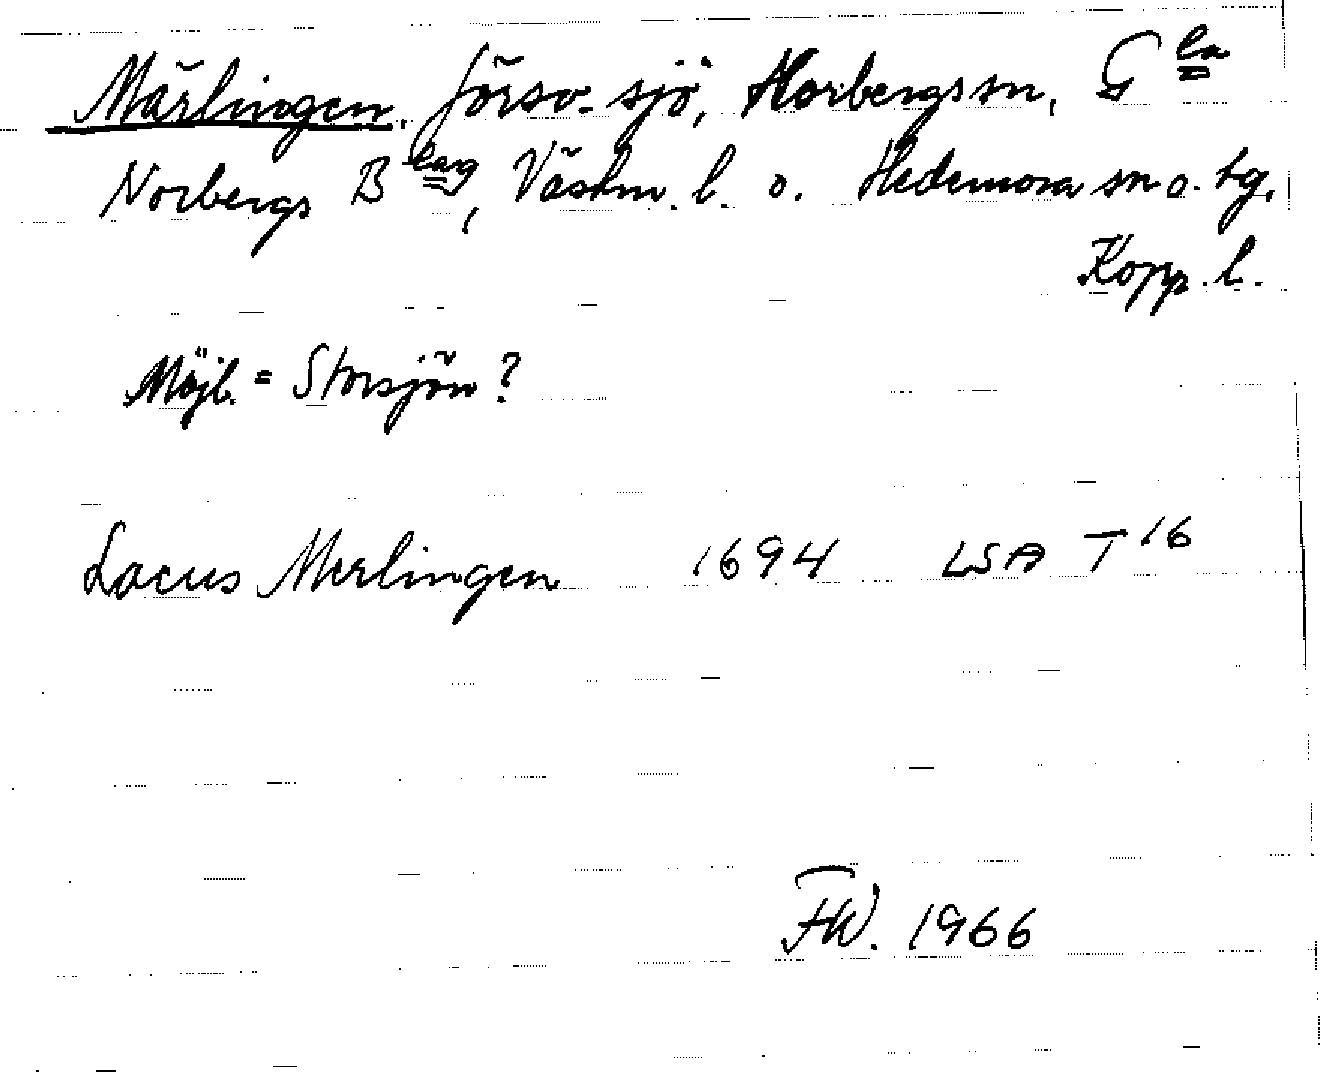 Märlingen, försv. sjö, Norbergs sn, G la
Norbergs B lag, Västm. l. o. Hedemora sn o. tg,
Kopp. l.
Möjl. = Storsjön?
Lacus Merlingen 1694 LSA T 16
FW. 1966